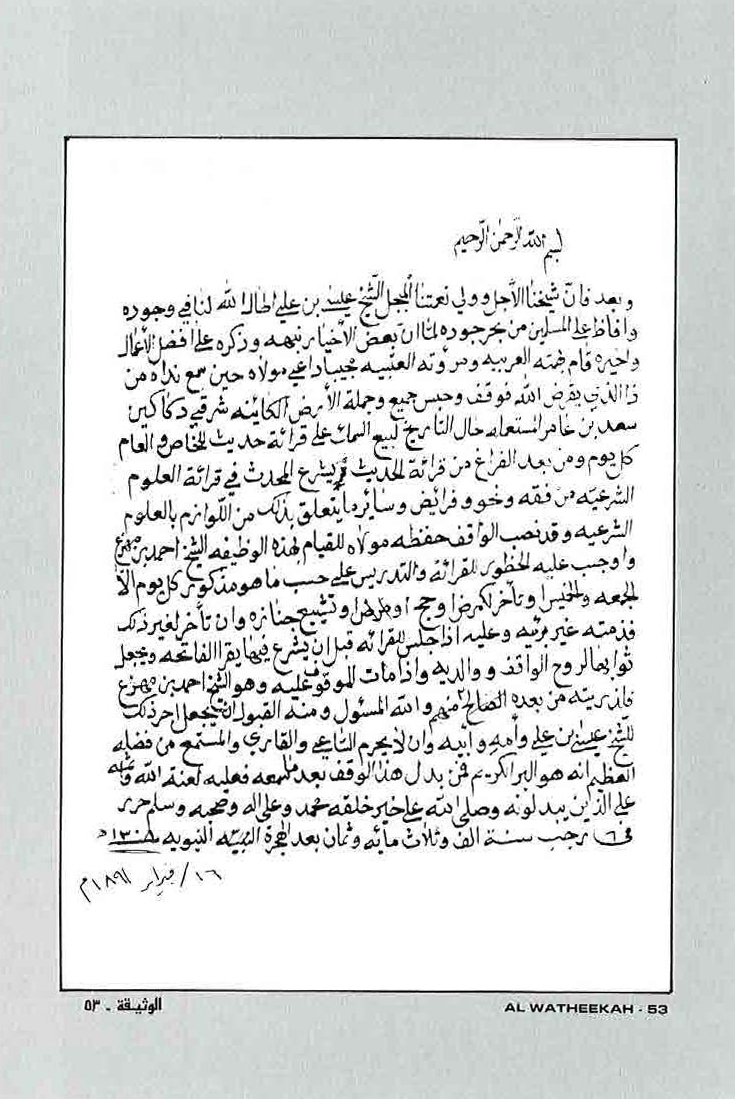 بسم الله الرحمن الرحيم
وبعد فان شيخنا الأجل وولي نعمتنا المبجل الشيخ عيسى بن علي اطال الله لنا في وجوده
وافاظ على المسلمين من بحر جوده لما ان بعض الأخيار نبهه وذكره على افضل الأعمال
واخيره قام بهمته العربيه ومروءته العتبيه مجيبا داعي مولاه حين سمع نداه من
ذا الذي يقرض الله فوقف وحبس جميع وجملة الأرض الكاينه شرقي دكاكين
سعد بن عامر المستعمله حال التاريخ لبيع السمك على قرائة حديث للخاص والعام
كل يوم ومن بعد الفراغ من قرائة الحديث يشرع المحدث في قرائة العلوم
الشرعيه من فقه ونحو وفرائض وساير ما يتعلق بذلك من اللوازم بالعلوم
الشرعيه وقد نصب الواقف حفظه مولاه للقيام بهذه الوظيفه الشيخ احمد بن مهزع
واوجب عليه الحظور للقرائة والتدريس على حسب ما هو مذكور كل يوم الا
الجمعه والخميس وتأخر لمرض او حج او وتشييع جنازه وان تأخر لغير ذلك
فذمته غير بريه وعليه اذا جلس للقرائه قبل ان يشرع فيها يقرا الفاتحه ويجعل
ثوابها لروح الواقف ووالديه واذا مات الموقوف عليه وهو الشيخ احمد بن مهزع
فلذريته من بعده الصالح منهم والله المسئول ومنه القبول ان يجعل اجر ذلك
للشيخ عيسى بن علي وأمه وابيه وان لا يحرم الساعي والقاري والمستمع من فضله
العظيم انه هو البر الكريم فمن بدل هذا الوقف بعد ما سمعه فعليه لعنة الله
على الذين يبدلونه وصلى الله على خير خلقه محمد وعلى اله وصحبه وسلم حرر
في ٦ رجب سنة الف وثلاث مائه وثمان بعد الهجرة النبويه ١٣٠٨ه
١٦ / فبراير ١٨٩١م
الوثيقة - ٥٣
AL WATHEEKAH - 53